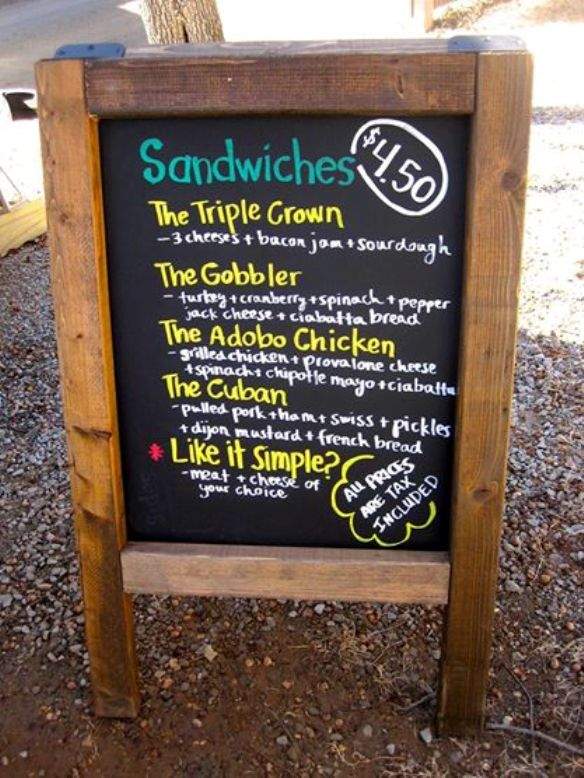 Sandwiches $4.50
The Triple Crown
- 3 cheeses + bacon jam + sourdough
The Gobbler
- turkey + cranberry + spinach + pepper
jack cheese + ciabatta bread
The Adobo Chicken
- grilled chicken + provalone cheese
+ spinach + chipotle mayo + ciabatta
The Cuban
- pulled pork + ham + swiss + pickles
+ dijon mustard + french bread
* Like it Simple?
- meat + cheese of
your choice
ALL PRICES
ARE TAX
INCLUDED